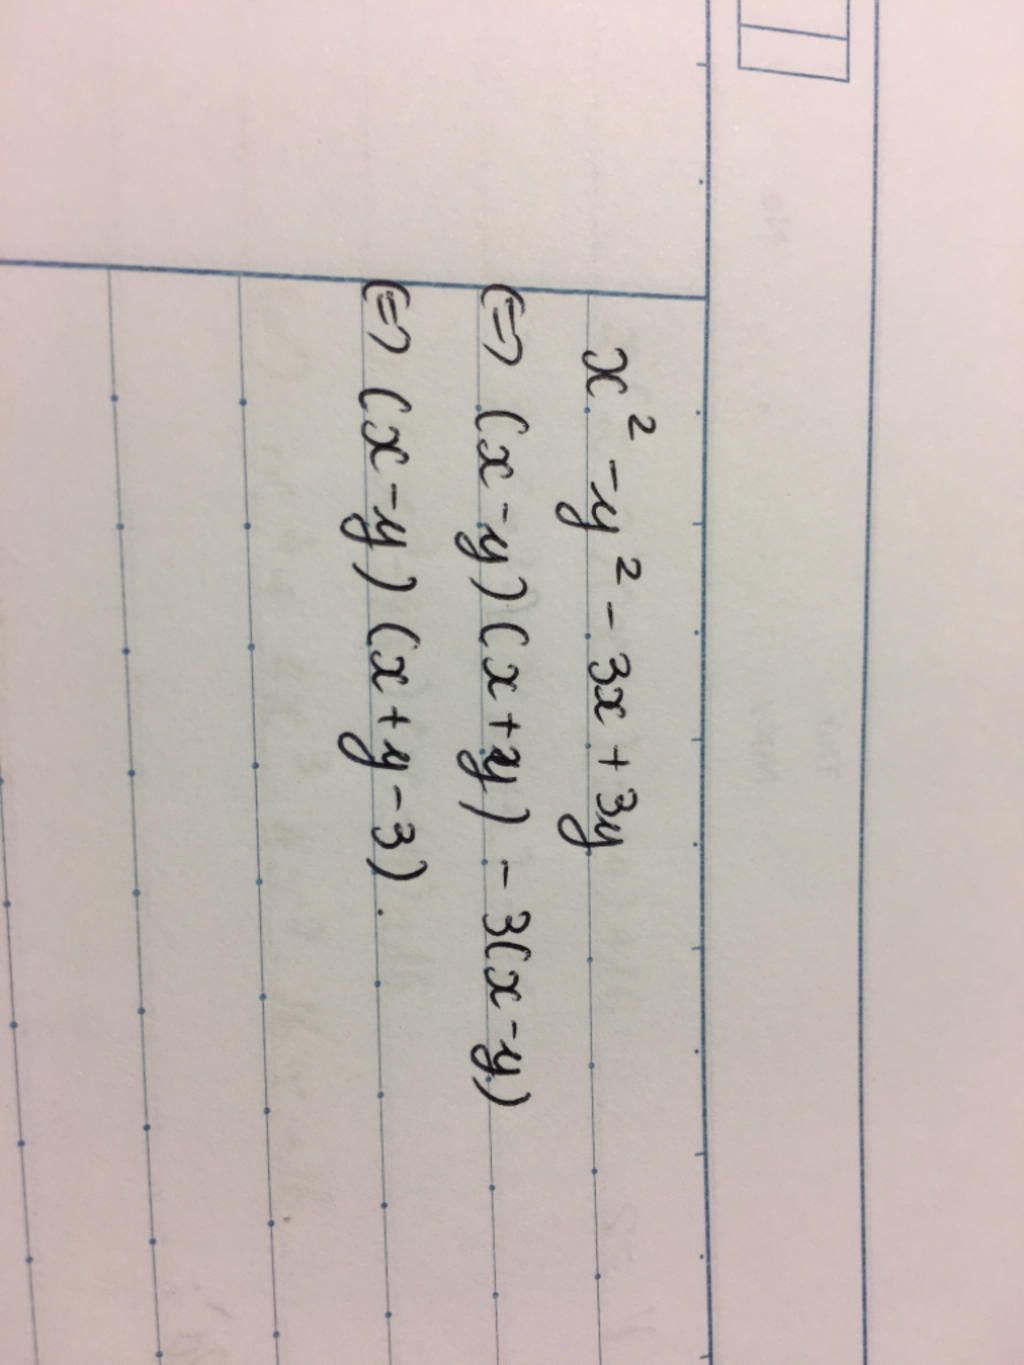 x² - y² - 3x + 3y
(=) (x - y) (x + y) - 3(x - y)
(=) (x - y) (x + y - 3).